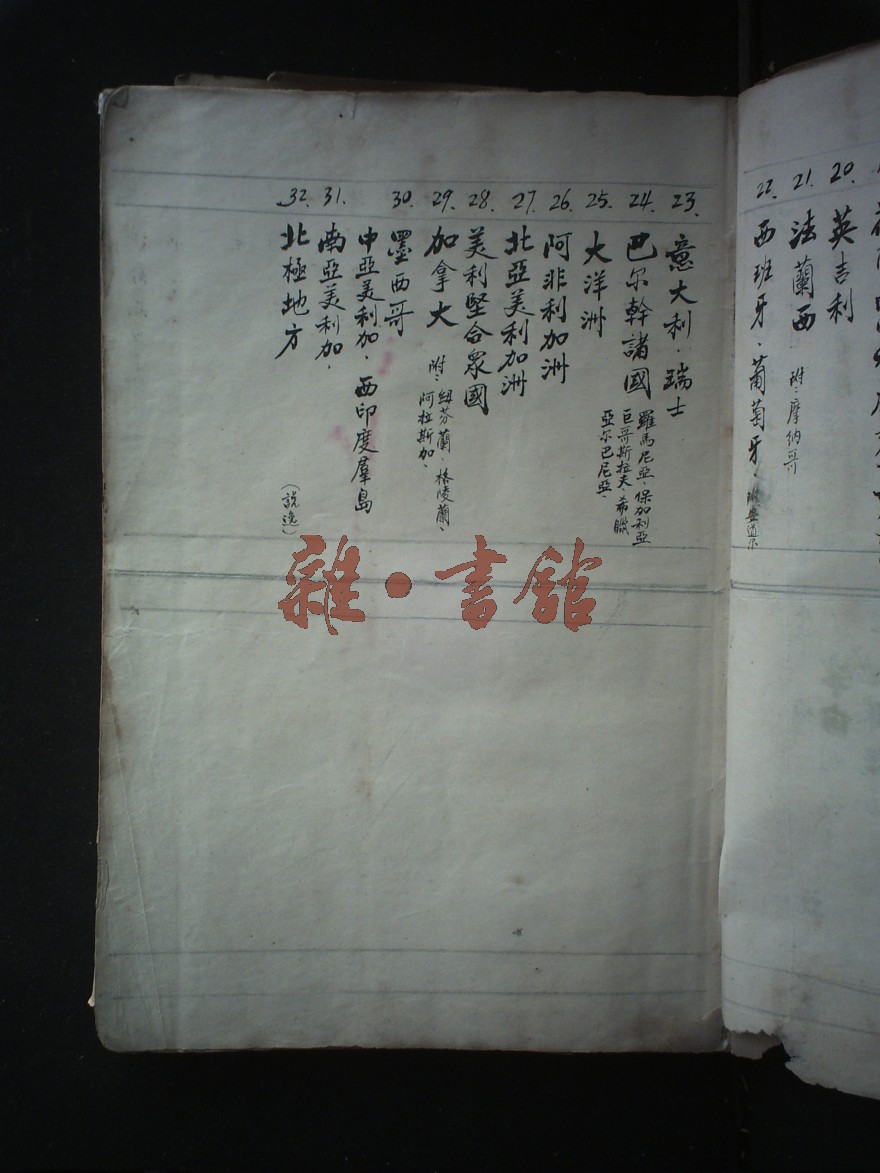 20. 英吉利
21. 法蘭西 附:摩納哥
22. 西班牙·葡萄牙·
23. 意大利·瑞士
24. 巴尔幹諸國 羅馬尼亞·保加利亞
巨哥斯拉夫·希臘
亞尔巴尼亞·
25. 大洋洲
26. 阿非利加洲
27. 北亞美利加洲
28. 美利堅合眾國
29. 加拿大 附:紐芬蘭·格陵蘭·
阿拉斯加·
30. 墨西哥
中亞美利加·西印度羣島
31. 南亞美利加·
32. 北極地方 (説逸)
雜·書館